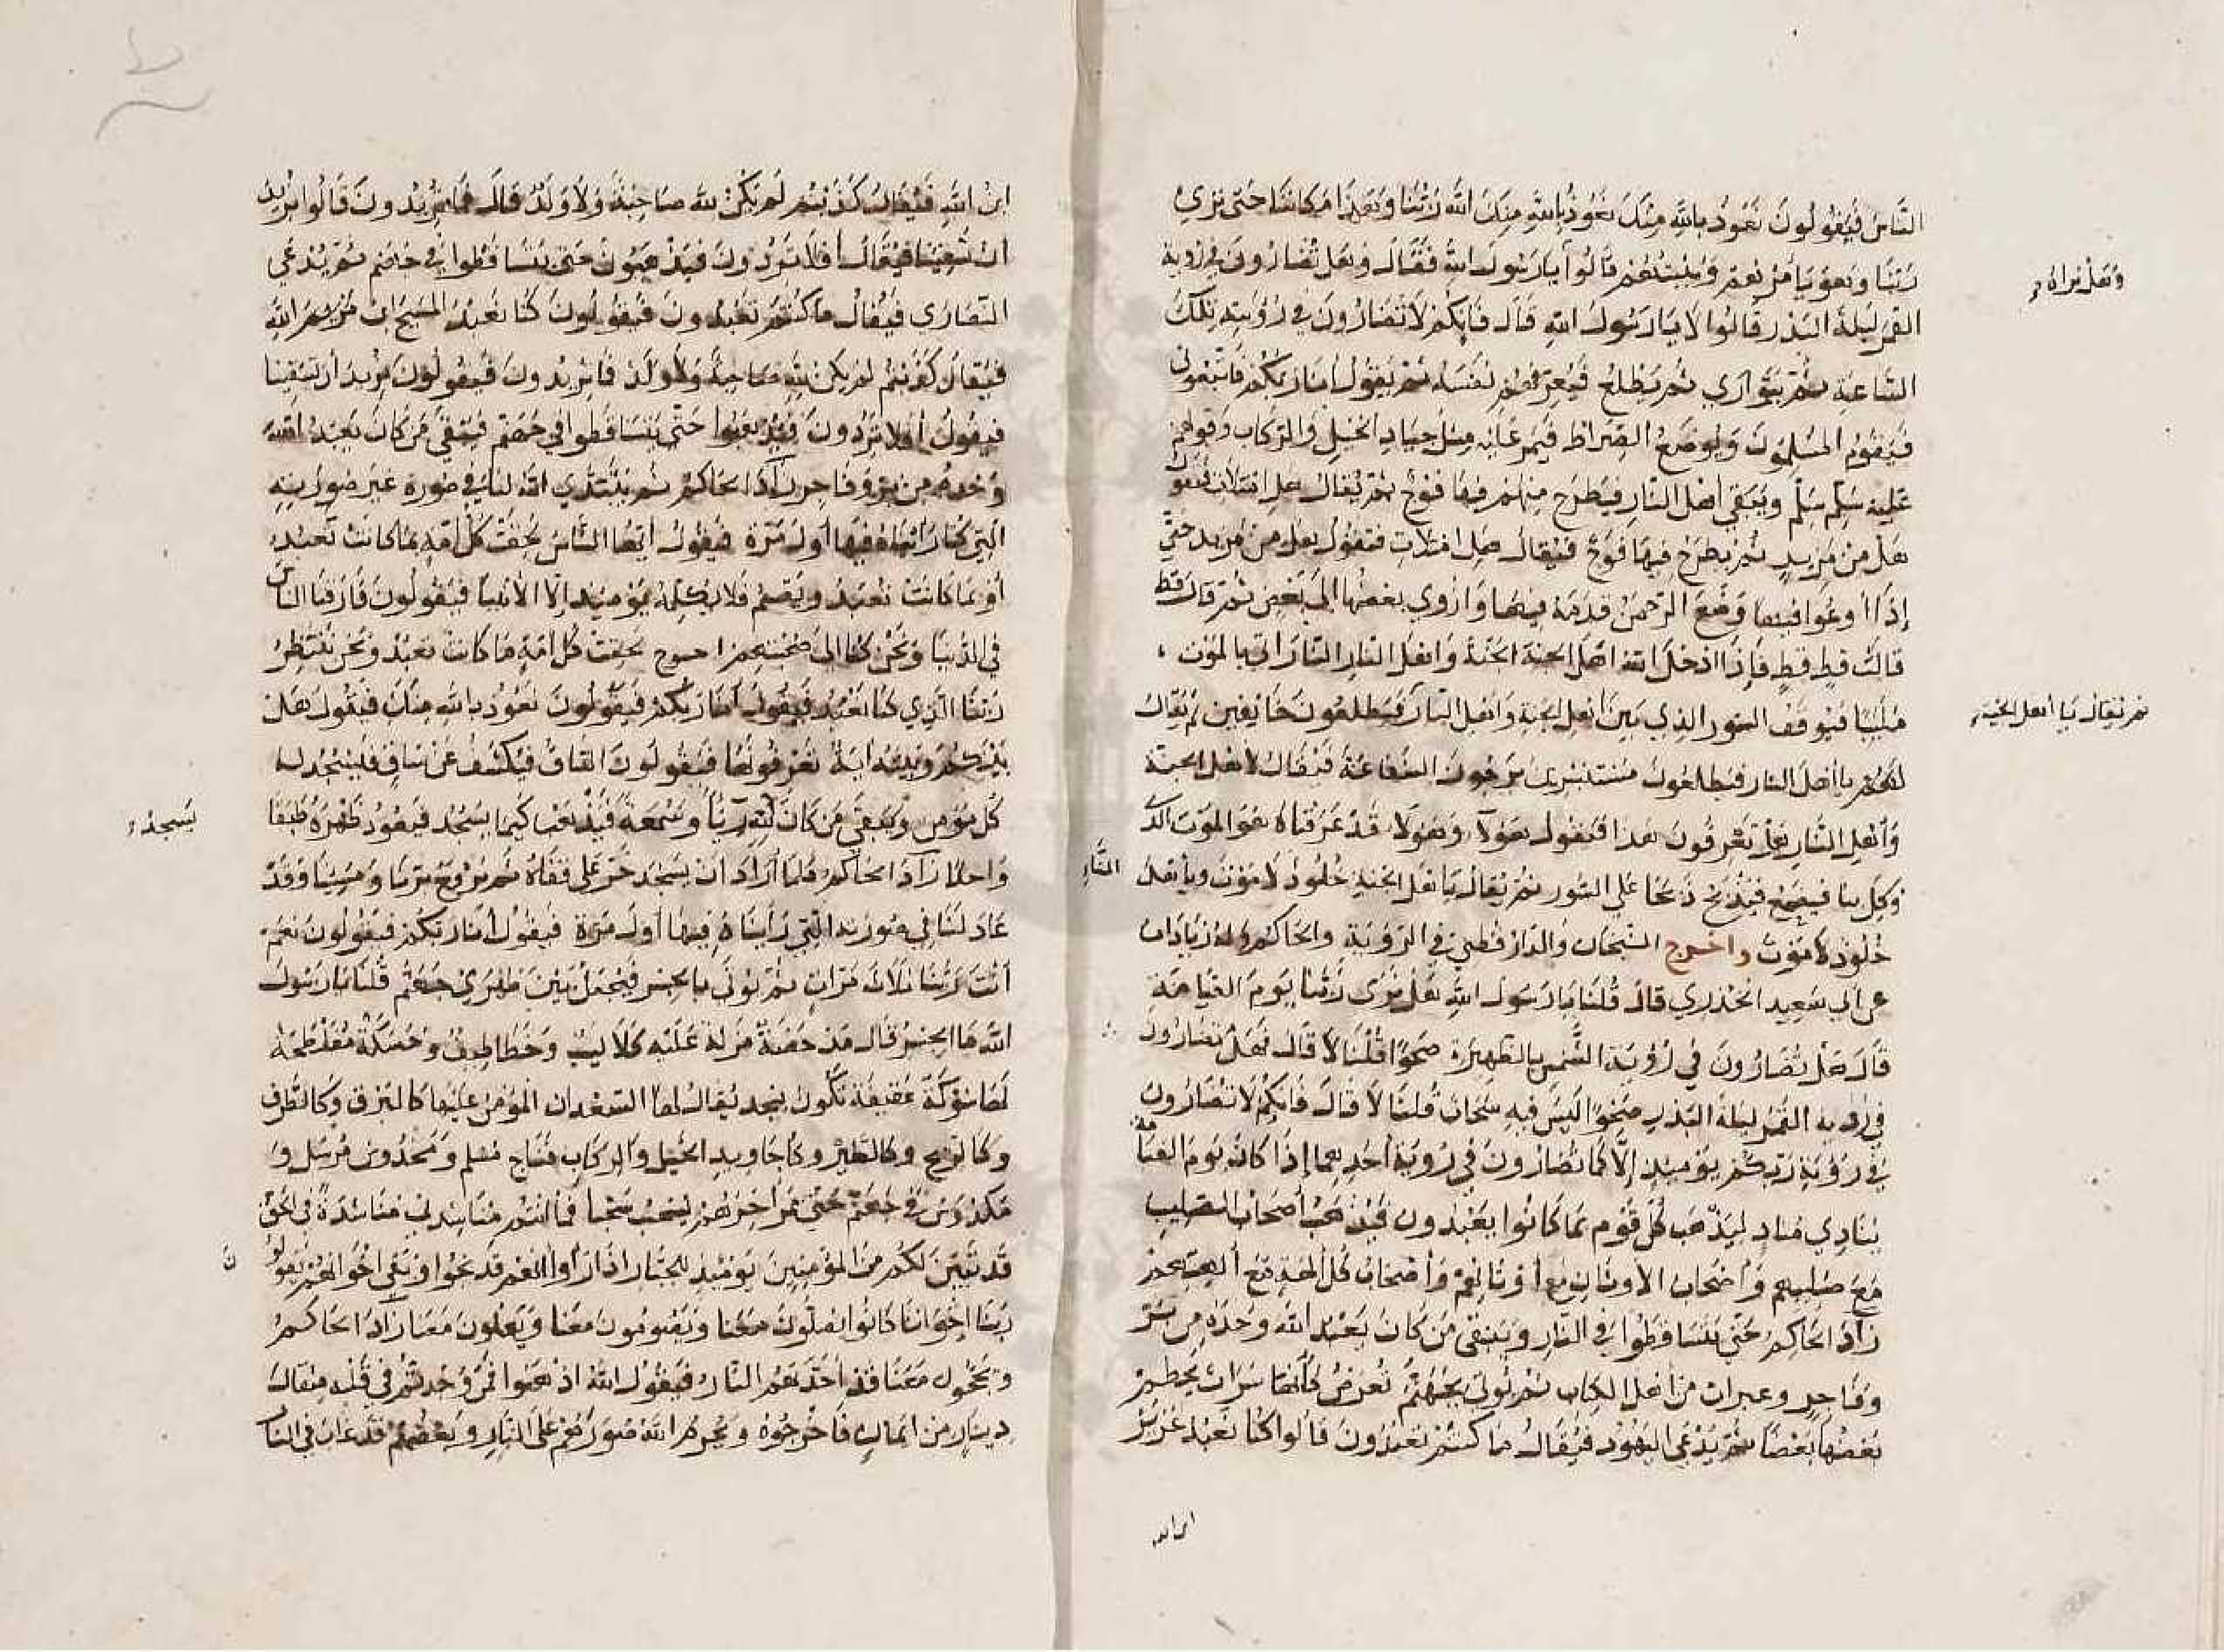 الناس فيقولون نعوذ بالله منك نعوذ بالله منك الله ربنا وهذا مكاننا حتى نرى
ربنا وهو يامرهم ويثبتهم قالوا يا رسول الله فقال وهل تضارون في رؤية
وهل نراه
القمر ليلة البدر قالوا لا يا رسول الله قال فانكم لا تضارون في رؤيته تلك
الساعة ثم يتوارى ثم يطلع فيعرفهم نفسه ثم يقول انا ربكم فاتبعوني
فيقوم المسلمون ويوضع الصراط فيمر عليه مثل جياد الخيل والركاب وقولهم
عليه سلم سلم ويبقى اهل النار فيطرح منهم فيها فوج ثم يقال هل امتلات فتقول
هل من مزيد ثم يطرح فيها فوج فيقال هل امتلات فتقول هل من مزيد حتى
إذا أوعوا فيها وضع الرحمن قدمه فيها وازوي بعضها الى بعض ثم قال قط
قالت قط قط فإذا ادخل الله اهل الجنة الجنة واهل النار النار اتي بالموت
ملببا فيوقف السور الذي بين اهل الجنة واهل النار فيطلعون خائفين ثم يقال
ثم يقال يا أهل الجنة
لهم يا اهل النار فيطلعون مستبشرين يرجون الشفاعة فيقال لاهل الجنة
وأهل النار هل تعرفون هذا فيقول هؤلاء وهؤلاء قد عرفناه هو الموت الذ
وكل بنا فيضجع فيذبح ذبحا على السور ثم يقال يا اهل الجنة خلود لا موت ويا أهل
النار
خلود لا موت واخرج الشيخان والدارقطني في الرؤية والحاكم وله زيادات
عن ابي سعيد الخدري قال قلنا يا رسول الله هل نرى ربنا يوم القيامة
قال هل تضارون في رؤية الشمس بالظهيرة صحوا قلنا لا قال فهل تضارون
في رؤية القمر ليلة البدر صحوا ليس فيه سحاب قلنا لا قال فانكم لا تضارون
في رؤية ربكم يومئذ إلا كما تضارون في رؤية أحدهما إذا كان يوم القيامة
ينادي مناد ليذهب كل قوم بما كانوا يعبدون فيذهب أصحاب الصليب
مع صليبهم وأصحاب الاوثان مع أوثانهم وأصحاب كل الهة مع الهتهم
زاد الحاكم حتى يتساقطوا في النار ويبقى من كان يعبد الله وحده من بر
وفاجر وغبرات من أهل الكتاب ثم يؤتى بجهنم تعرض كأنها سراب يحطم
بعضها بعضا ثم يدعى اليهود فيقال ما كنتم تعبدون قالوا كنا نعبد عزير
ابن الله
ابن الله فيقال كذبتم لم يكن لله صاحبة ولا ولد قال فما تريدون قالوا نريد
ان تسقينا فيقال أفلا تردون فيذهبون حتى يتساقطوا في جهنم ثم يدعى
النصارى فيقال ما كنتم تعبدون فيقولون كنا نعبد المسيح ابن مريم الله
فيقال كذبتم لم يكن لله صاحبة ولا ولد فما تريدون فيقولون نريد أن تسقينا
فيقول أفلا تردون فيذهبوا حتى يتساقطوا في جهنم فيبقى من كان يعبد الله
وحده من بر وفاجر زاد الحاكم ثم يتبدى الله لنا في صورة غير صورته
التي كنا رأيناه فيها أول مرة فيقول أيها الناس لحقت كل امة بما كانت تعبد
أو بما كانت تعبد وبقيتم فلا يكلمه يومئذ إلا الأنبيا فيقولون فارقنا الناس
في الدنيا ونحن كنا الى صحبتهم احوج لحقت كل امة ما كانت تعبد ونحن ننتظر
ربنا الذي كنا نعبد فيقول أنا ربكم فيقولون نعوذ بالله منك فيقول هل
بينكم وبينه اية تعرفونها فيقولون الساق فيكشف عن ساق فليسجد له
كل مؤمن ويبقى من كان لله رياً وسمعة فيذهب كيما يسجد فيعود ظهره طبقا
يسجد
واحدا زاد الحاكم فلما أراد ان يسجد خر على قفاه ثم يرفع برنا ومسيئنا وقد
عاد لنا في صورته التي رأيناه فيها أول مرة فيقول أنا ربكم فيقولون نعم
أنت ربنا ثلاث مرات ثم يؤتى بالجسر فيجعل بين ظهري جهنم قلنا يا رسول
الله ما الجسر قال مدحضة مزلة عليه كلاليب وخطاطيف وحسكة مفلطحة
لها شوكة عقيفة تكون بنجد يقال لها السعدان المؤمن عليها كالبرق وكالطرف
وكالريح وكالطير وكأجاويد الخيل والركاب فناج مسلم ومخدوش مرسل و
مكدوس في جهنم حتى يمر اخرهم يسحب سحبا فما انتم مناشدة في الحق
قد تبين لكم من المؤمنين يومئذ للجبار اذا رأوا انهم قد نجوا وبقي اخوانهم يقولون
ربنا اخواننا كانوا يصلون معنا ويصومون معنا ويعملون معنا زاد الحاكم
ويحجون معنا قد أخذتهم النار فيقول الله اذهبوا فمن وجدتم في قلبه مثقال
دينار من ايمان فاخرجوه ويحرم الله صورهم على النار وبعضهم قد غاب في النار